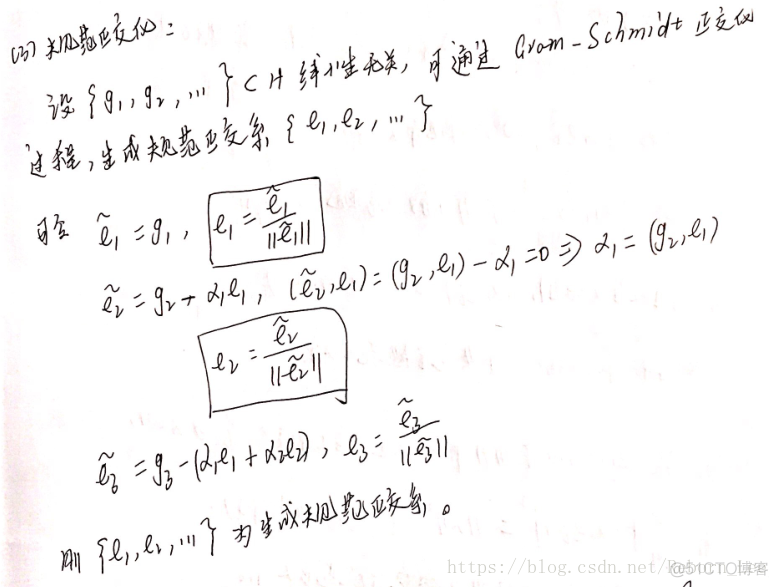 (3) 规范正交化：
设 {g₁, g₂, …} ⊂ H 线性无关，可通过 Gram-Schmidt 正交化
过程，生成规范正交系 {e₁, e₂, …}
ẽ₁ = g₁, e₁ = ẽ₁/||ẽ₁||
ẽ₂ = g₂ + α₁e₁, (ẽ₂, e₁) = (g₂, e₁) - α₁ = 0 ⇒ α₁ = (g₂, e₁)
e₂ = ẽ₂/||ẽ₂||
ẽ₃ = g₃ - (α₁e₁ + α₂e₂), e₃ = ẽ₃/||ẽ₃||
则 {e₁, e₂, …} 为生成规范正交系。
https://blog.csdn.net/
@51CTO博客